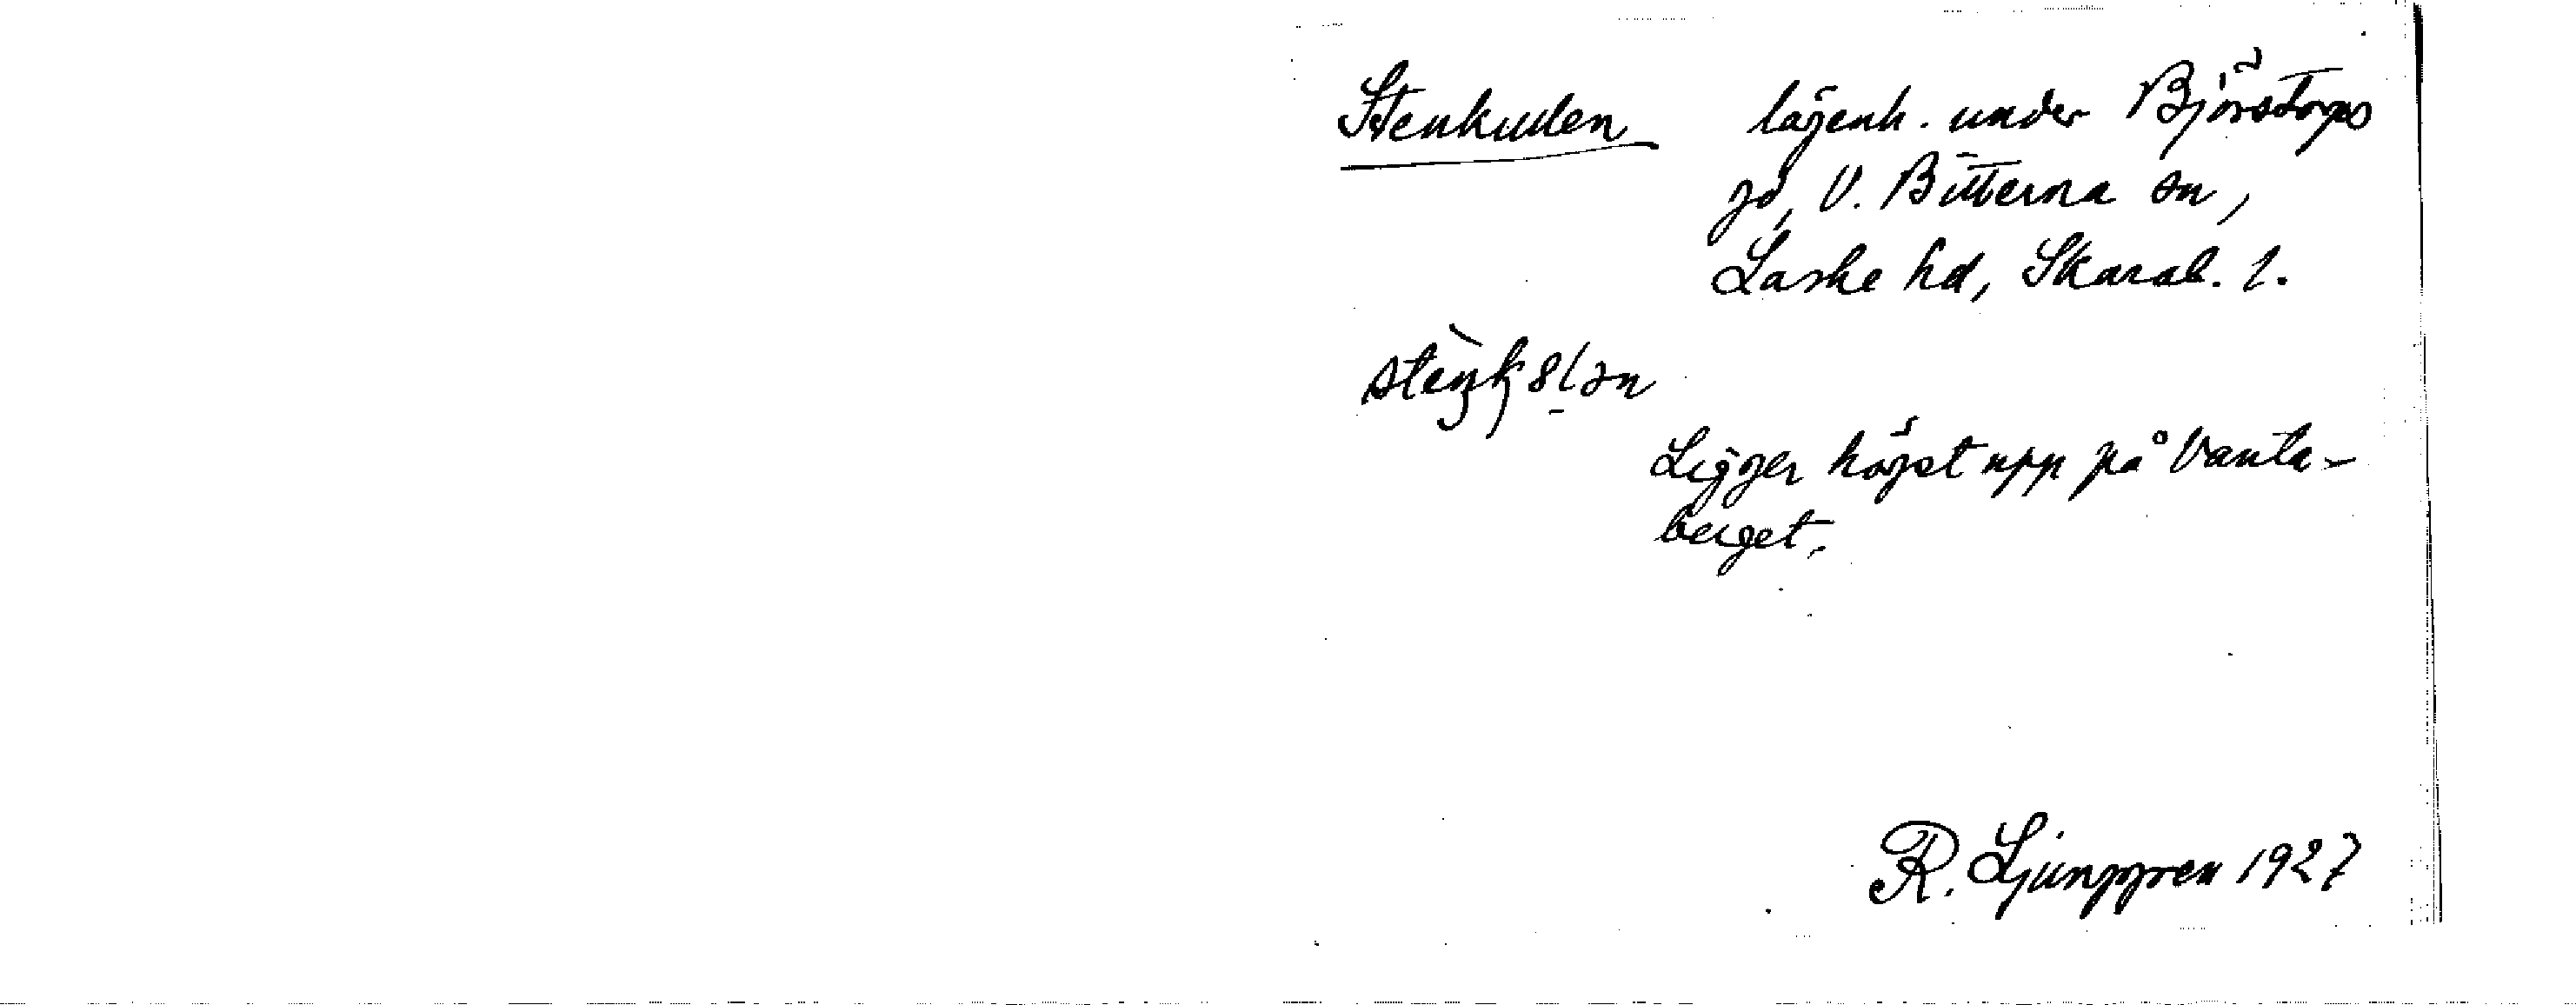 Stenkullen lägenh. under Björstorps
gd, V. Bitterna sn,
Laske hd, Skarab. l.
Ligger högst upp på Vanta-
berget.
R. Ljunggren 1927